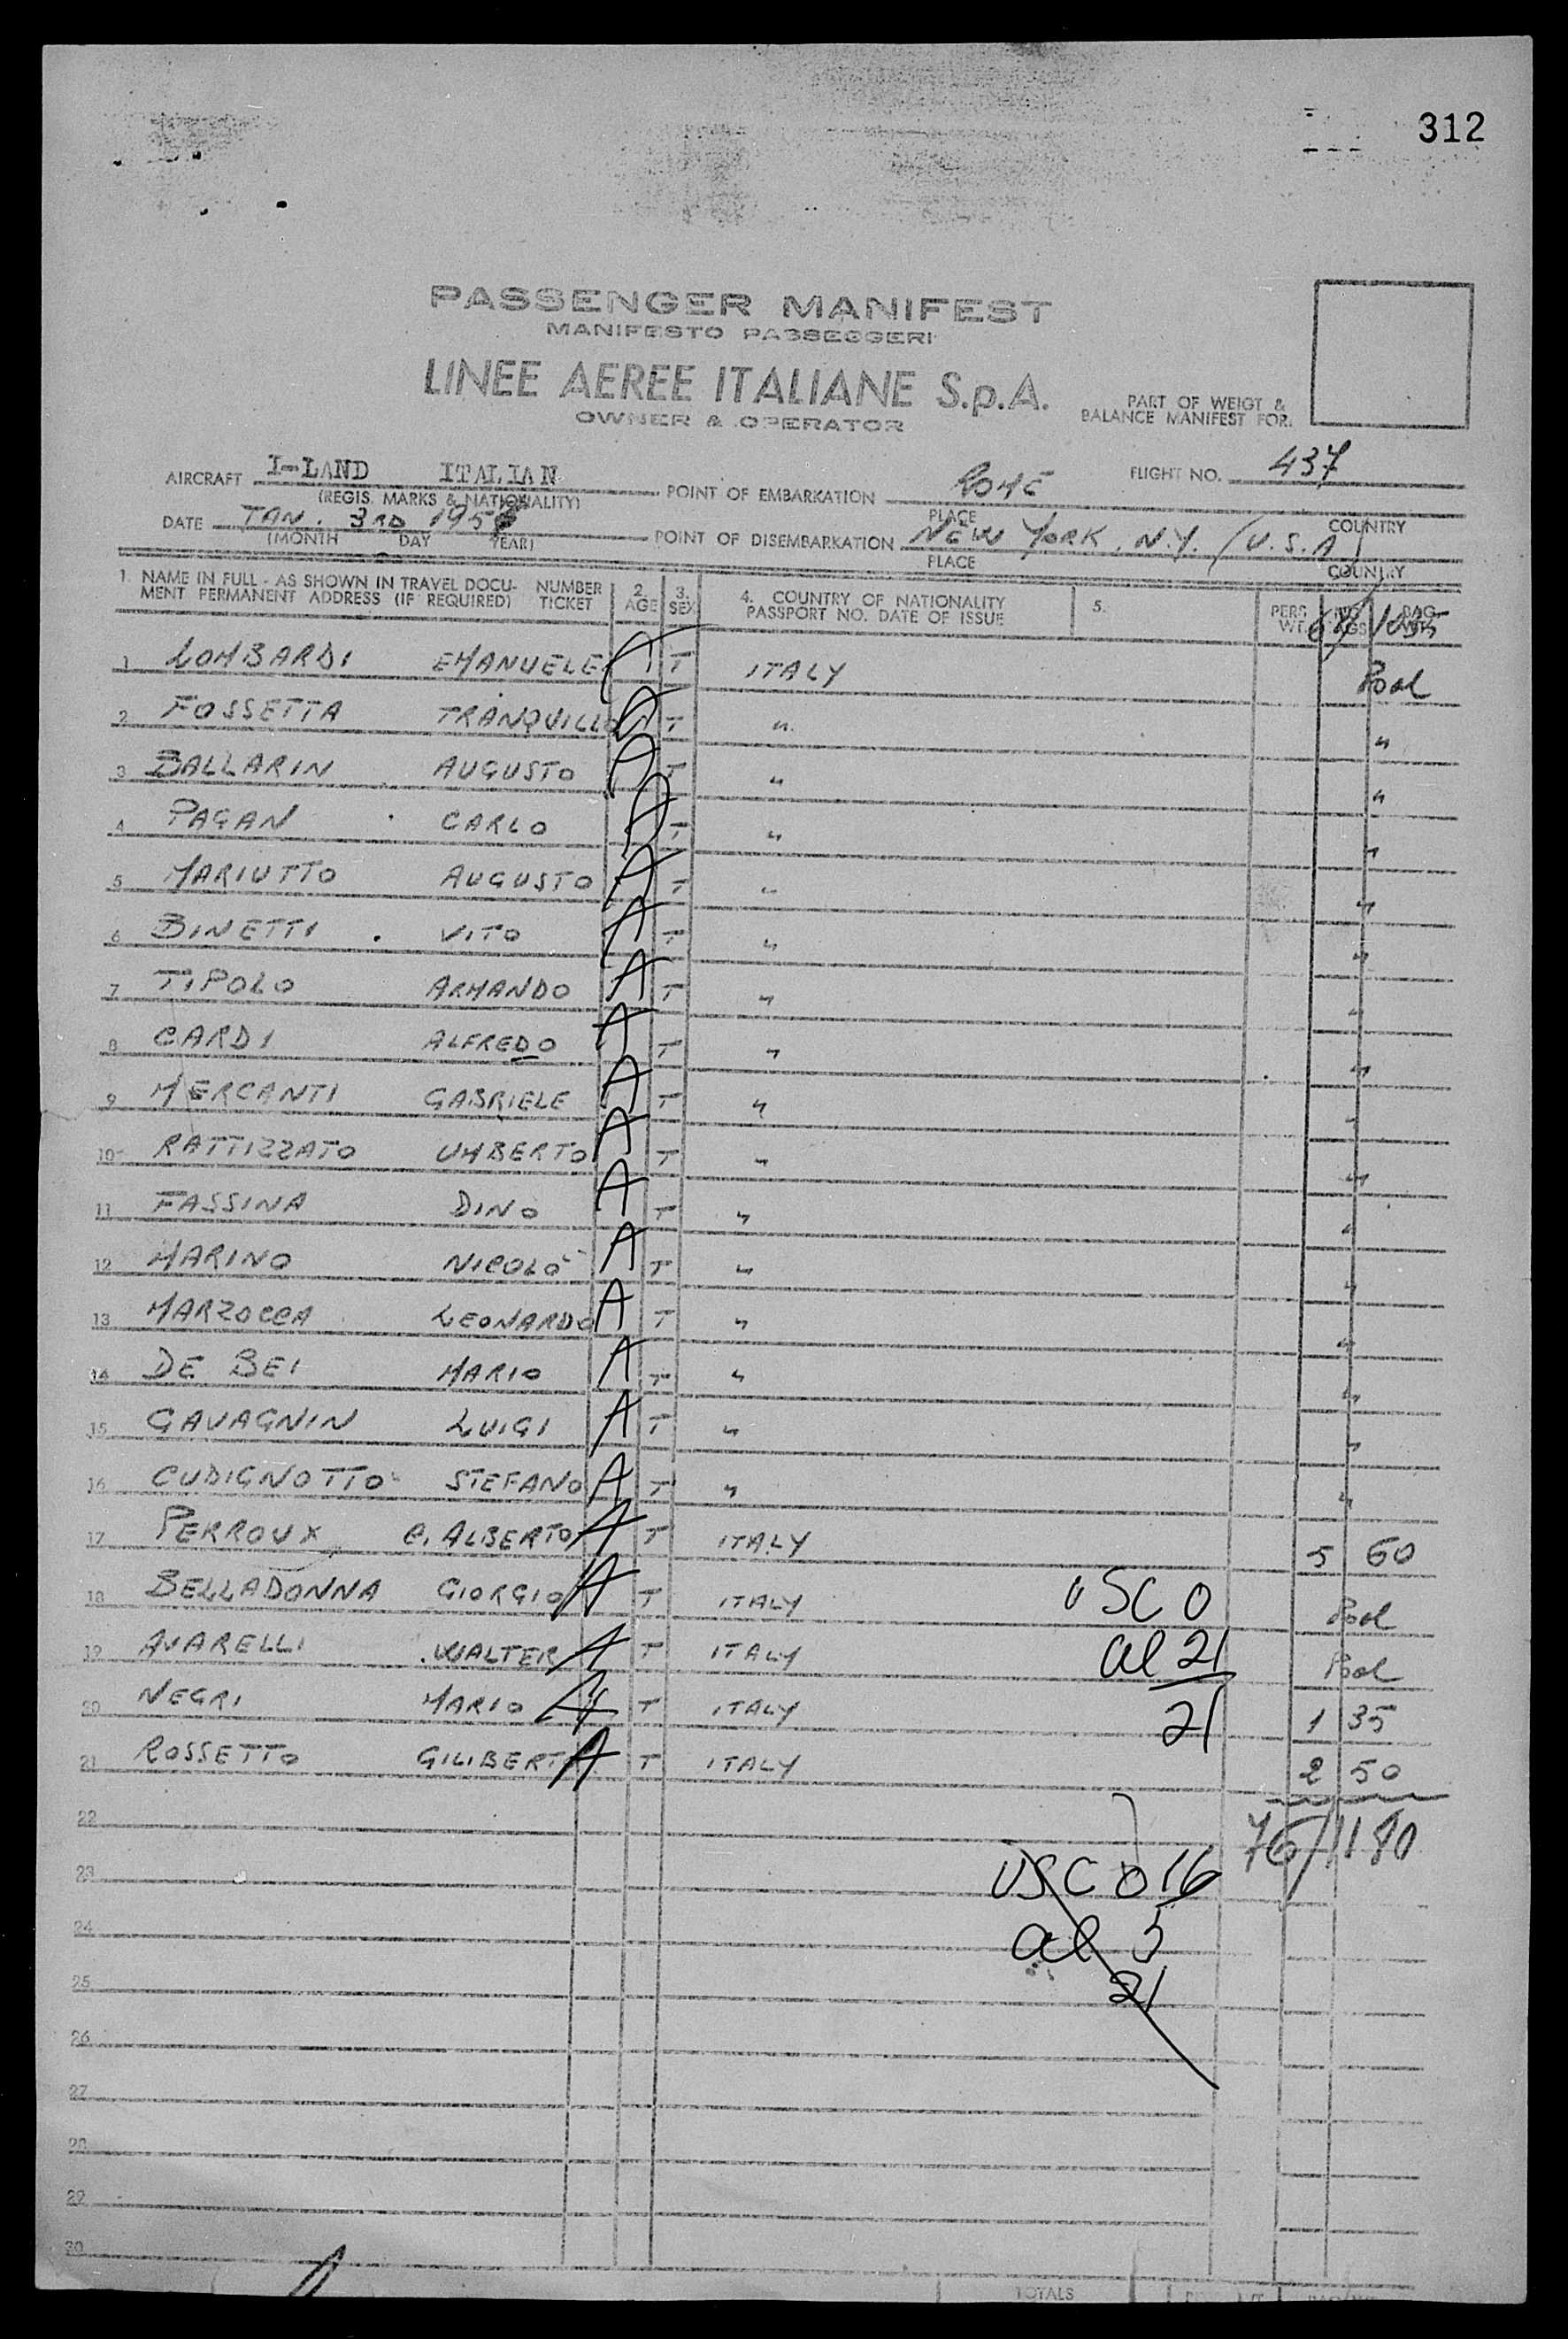 312
PASSENGER MANIFEST
MANIFESTO PASSEGGERI
LINEE AEREE ITALIANE S.p.A.
OWNER & OPERATOR
PART OF WEIGT &
BALANCE MANIFEST FOR:
AIRCRAFT I-LAND ITALIAN POINT OF EMBARKATION ROME FLIGHT NO. 437
(REGIS. MARKS & NATIONALITY) PLACE COUNTRY
DATE JAN. 3RD 195 POINT OF DISEMBARKATION NEW YORK, N.Y. (U.S.A)
(MONTH DAY YEAR) PLACE COUNTRY
1. NAME IN FULL - AS SHOWN IN TRAVEL DOCU- NUMBER 2. 3. 4. COUNTRY OF NATIONALITY 5. PERS
MENT PERMANENT ADDRESS (IF REQUIRED) TICKET AGE SEX PASSPORT NO. DATE OF ISSUE WT.
1 LOMBARDI EMANUELE A T ITALY Pool
2 FOSSETTA TRANQUILLO A T " "
3 BALLARIN AUGUSTO A T " "
4 PAGAN CARLO A T " "
5 MARIUTTO AUGUSTO A T " "
6 BINETTI VITO A T " "
7 TIPOLO ARMANDO A T " "
8 CARDI ALFREDO A T " "
9 MERCANTI GABRIELE A T " "
10 RATTIZZATO UMBERTO A T " "
11 FASSINA DINO A T " "
12 MARINO NICOLO' A T " "
13 MARZOCCA LEONARDO A T " "
14 DE BEI MARIO A T " "
15 GAVAGNIN LUIGI A T " "
16 CUDIGNOTTO STEFANO A T " "
17 PERROUX C. ALBERTO A T ITALY 5 60
18 BELLADONNA GIORGIO A T ITALY USC 0 Pool
19 AVARELLI WALTER A T ITALY al 21 Pool
20 NEGRI MARIO A T ITALY 21 1 35
21 ROSSETTO GILIBERT A T ITALY 2 50
22 76/1180
23 USC 0 16
24 al 5
25 21
26
27
28
29
30
TOTALS